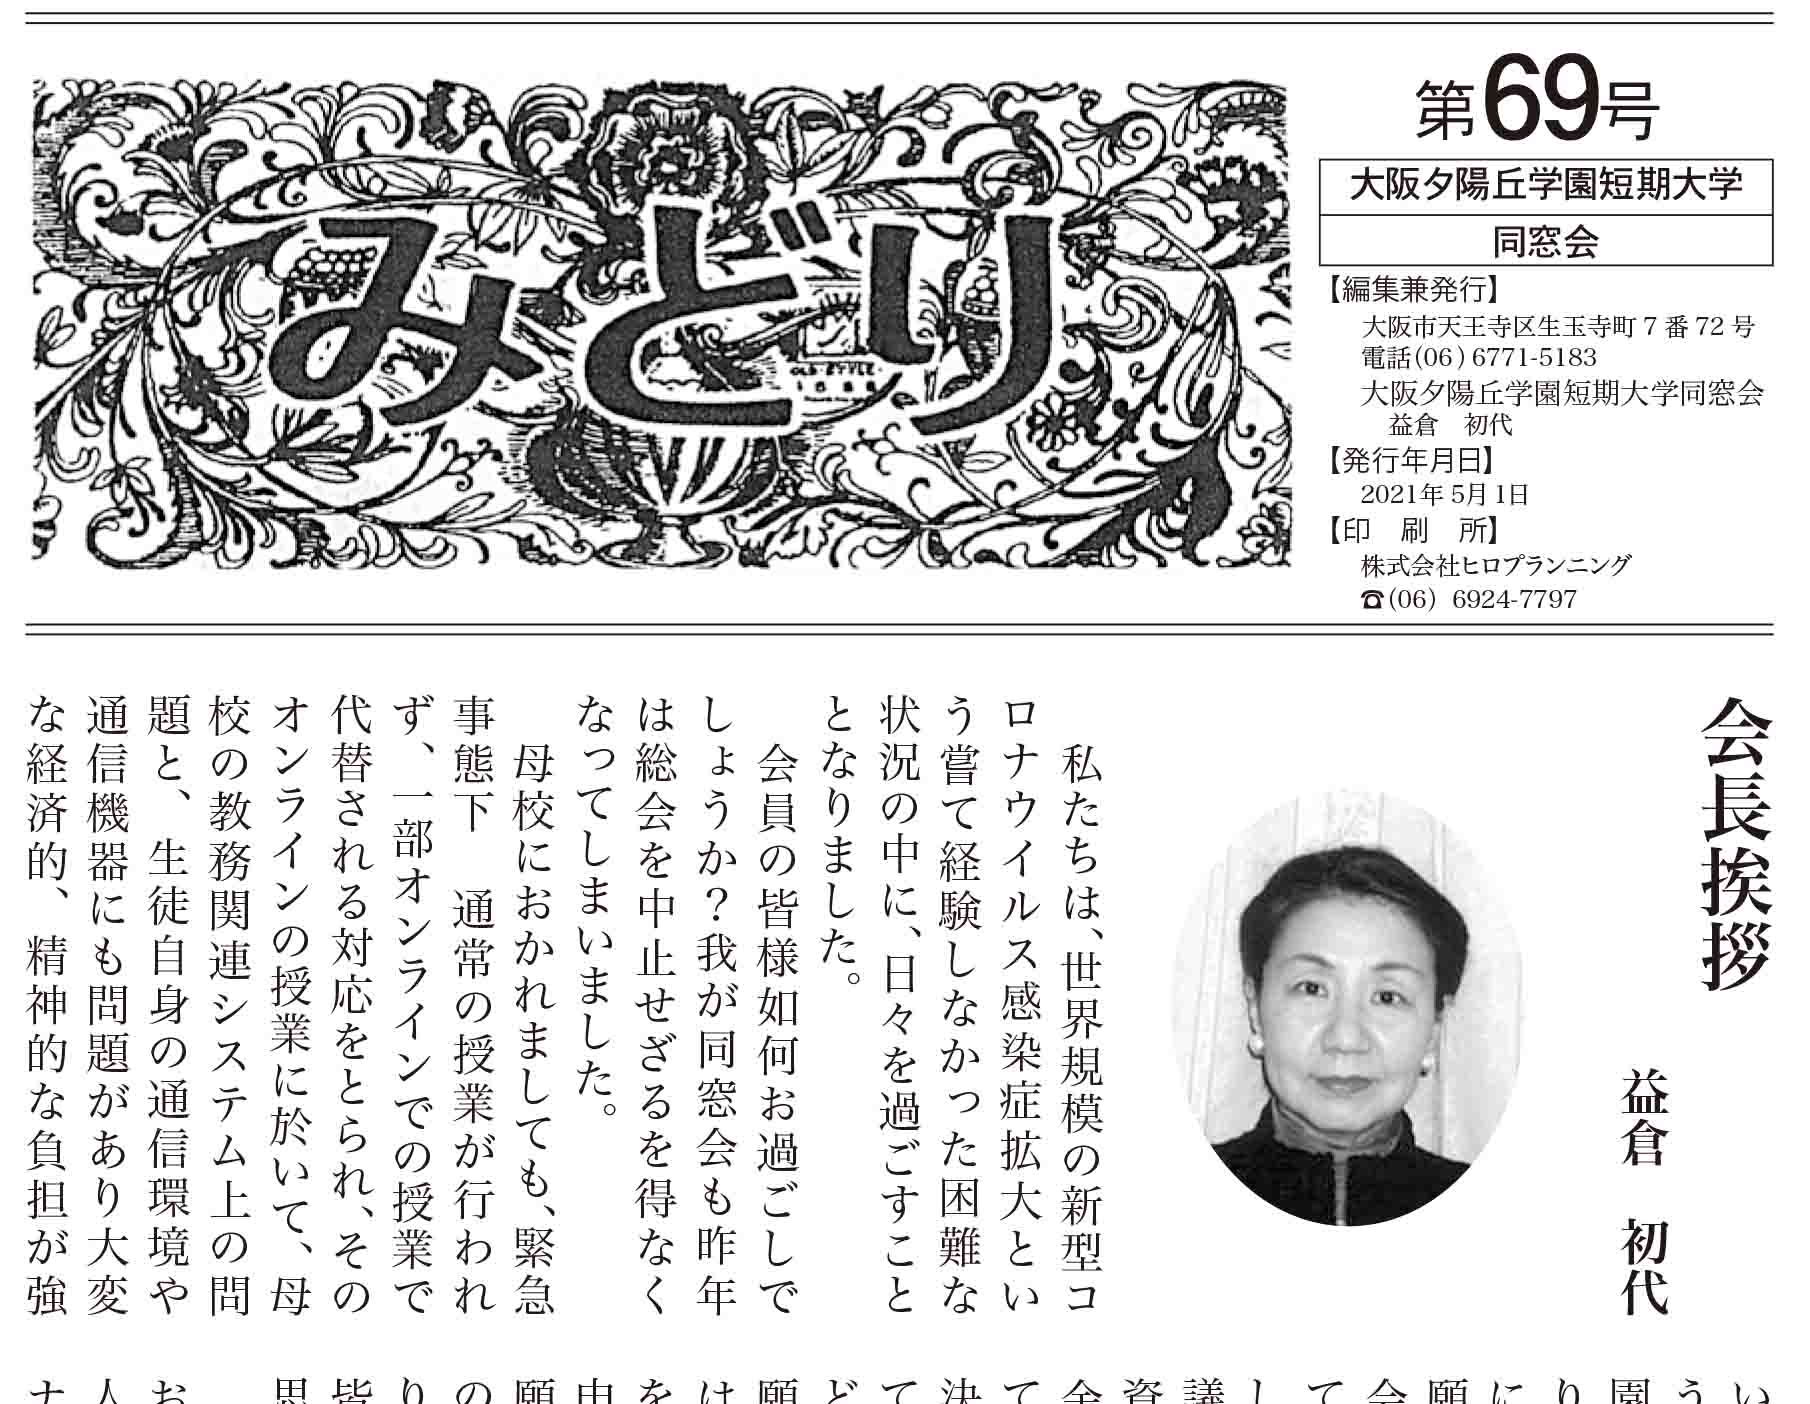 みどり
OLD STYLE
第69号
大阪夕陽丘学園短期大学
同窓会
【編集兼発行】
大阪市天王寺区生玉寺町7番72号
電話(06)6771-5183
大阪夕陽丘学園短期大学同窓会
益倉　初代
【発行年月日】
2021年5月1日
【印　刷　所】
株式会社ヒロプランニング
☎(06) 6924-7797
会長挨拶
益倉　初代
　私たちは、世界規模の新型コ
ロナウイルス感染症拡大とい
う嘗て経験しなかった困難な
状況の中に、日々を過ごすこと
となりました。
　会員の皆様如何お過ごしで
しょうか？我が同窓会も昨年
は総会を中止せざるを得なく
なってしまいました。
　母校におかれましても、緊急
事態下　通常の授業が行われ
ず、一部オンラインでの授業で
代替される対応をとられ、その
オンラインの授業に於いて、母
校の教務関連システム上の問
題と、生徒自身の通信環境や
通信機器にも問題があり大変
な経済的、精神的な負担が強